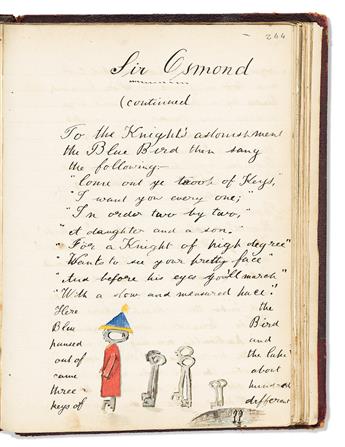 264
Sir Osmond
(continued
To the Knight's astonishment
the Blue Bird then sang
the following:-
"Come out ye troop of Keys,"
"I want you every one;"
"In order two by two,"
"A daughter and a son."
"For a Knight of high degree"
"Wants to see your pretty face"
"And before his eyes you'll march"
"With a slow and measured pace!"
Here the
Blue Bird
paused and
out of the lake
came about
three hundred
keys of different